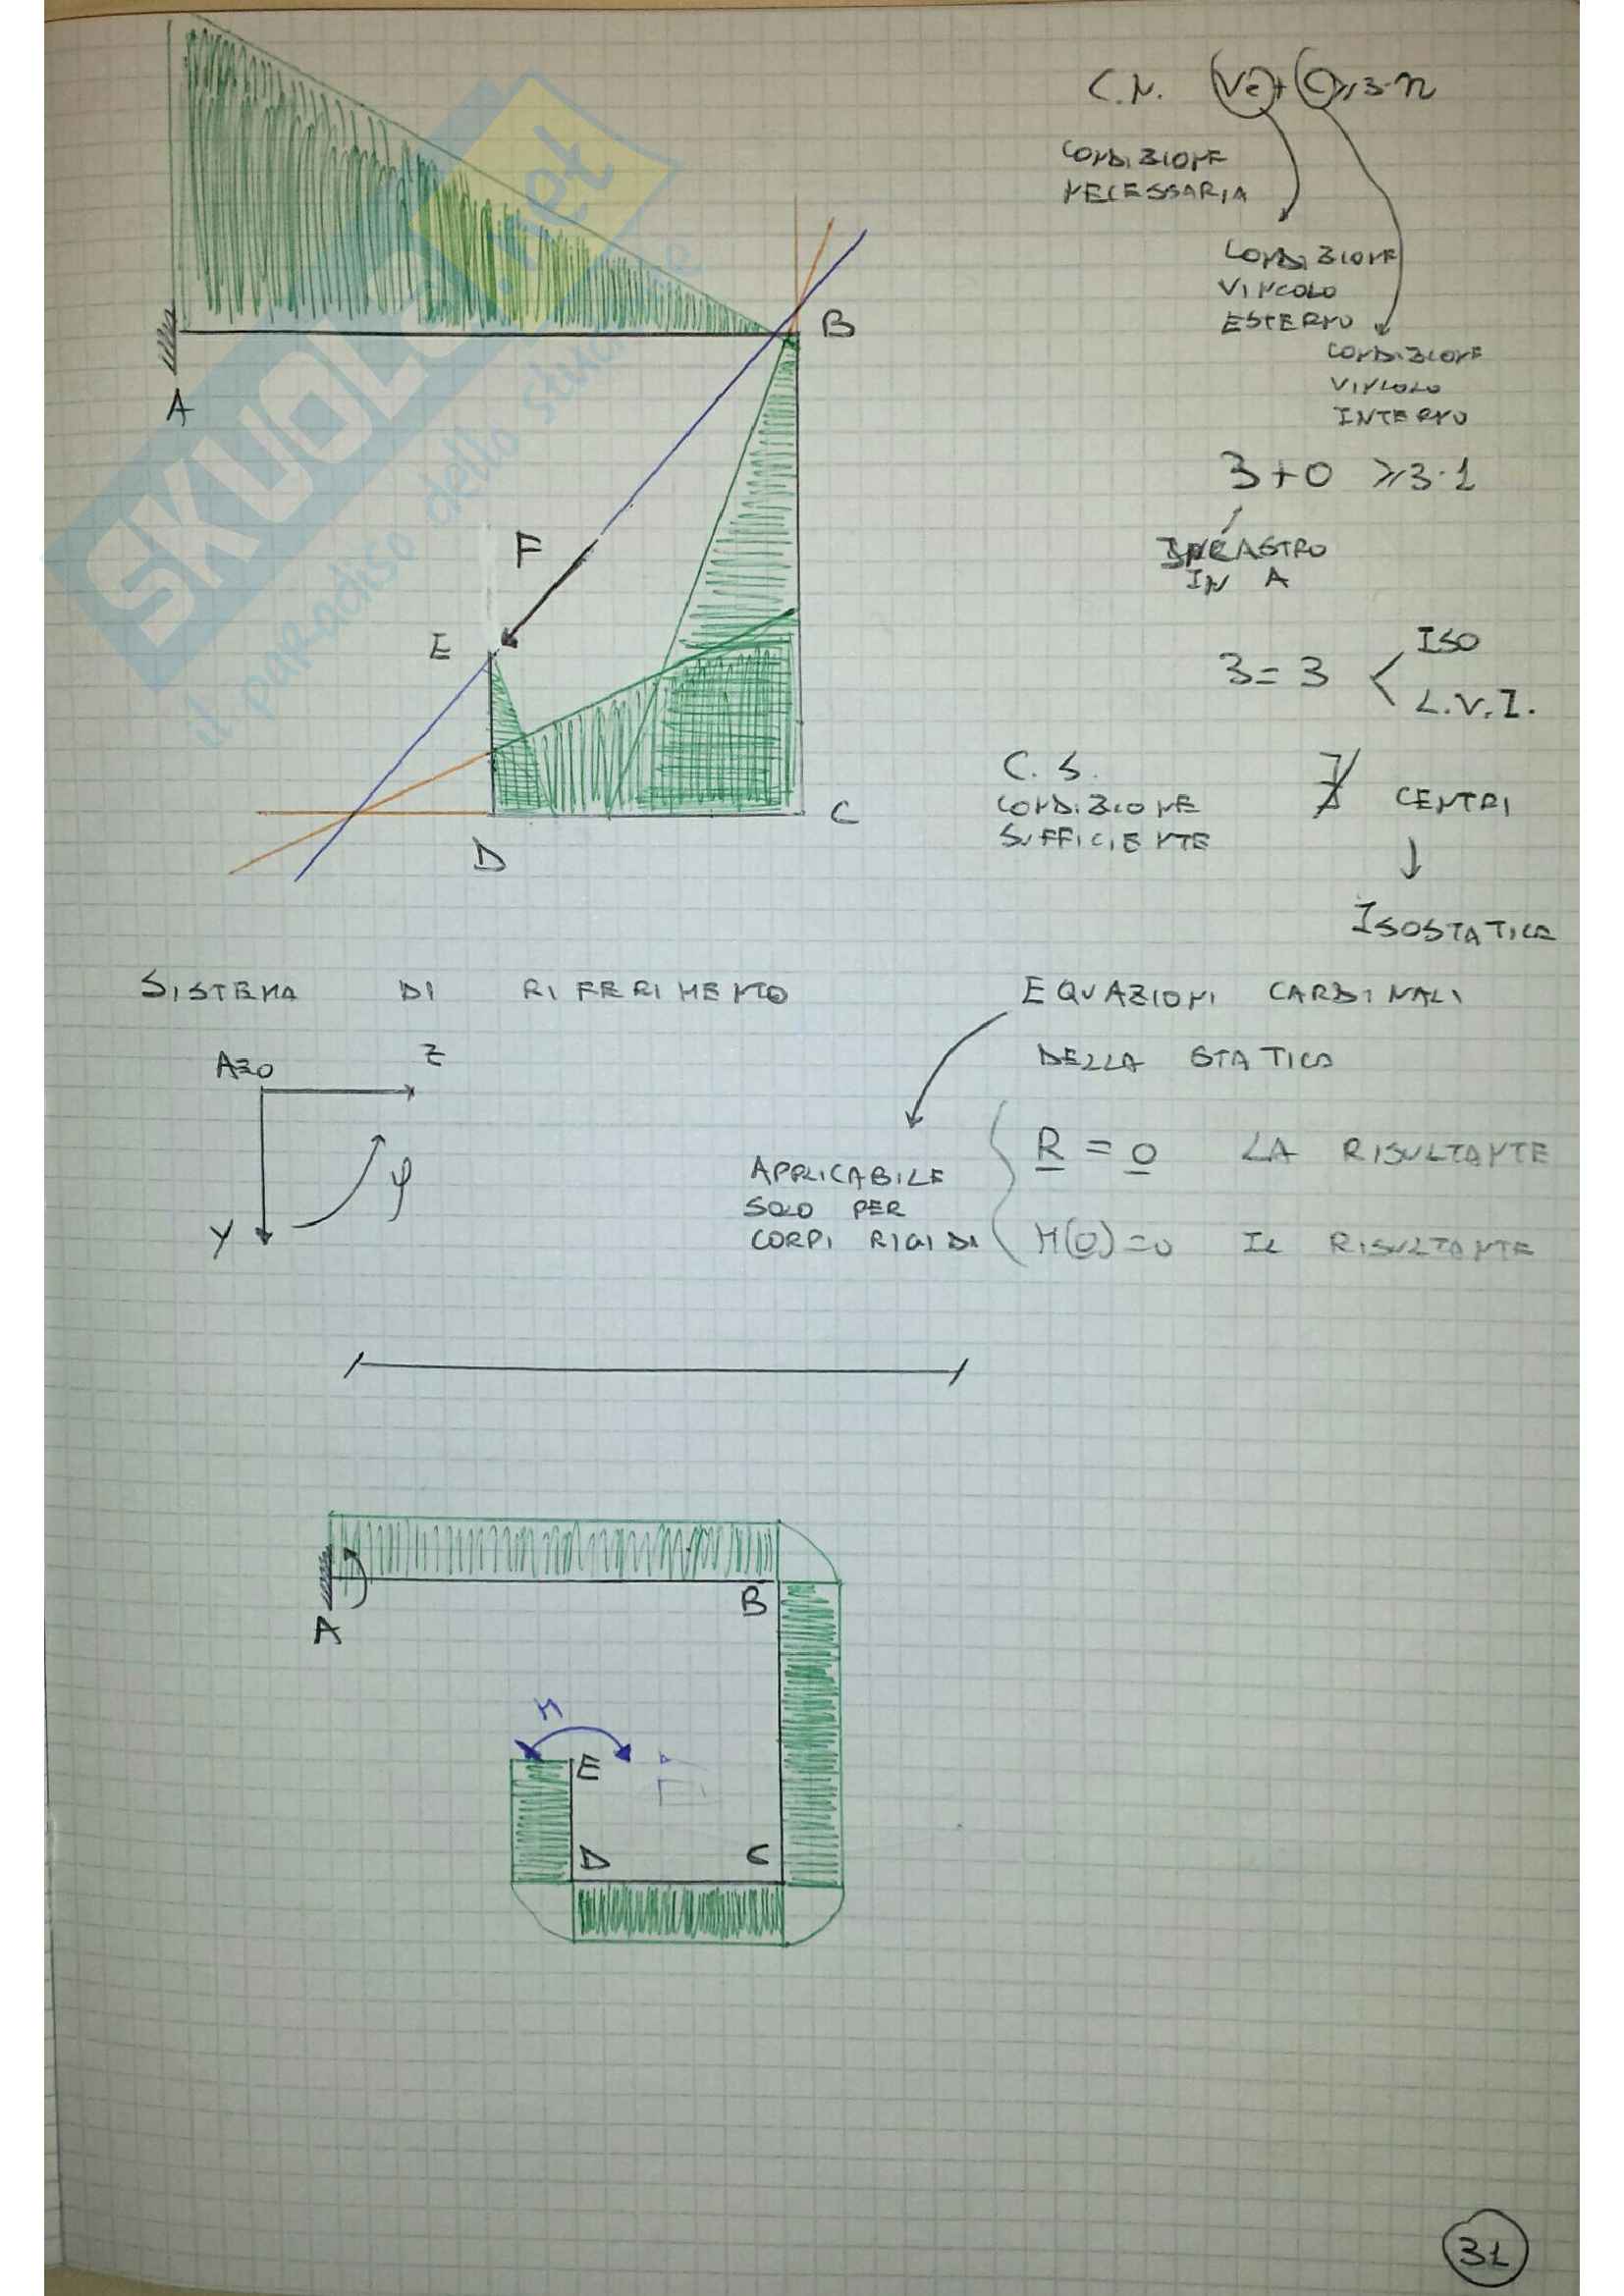 C.N. Ve + C ≥ 3·n
CONDIZIONE
NECESSARIA
CONDIZIONE
VINCOLO
ESTERNO
CONDIZIONE
VINCOLO
INTERNO
3+0 ≥ 3·1
INCASTRO
IN A
3=3
ISO
L.V.I.
C.S.
CONDIZIONE
SUFFICIENTE
∄ CENTRI
ISOSTATICA
A
B
F
E
C
D
SKUOLA.net
il paradiso dello studente
SISTEMA DI RIFERIMENTO
A≡O
Z
φ
Y
EQUAZIONI CARDINALI
DELLA STATICA
APPLICABILE
SOLO PER
CORPI RIGIDI
R = 0 LA RISULTANTE
M(O)=0 IL RISULTANTE
A
B
M
E
D
C
31